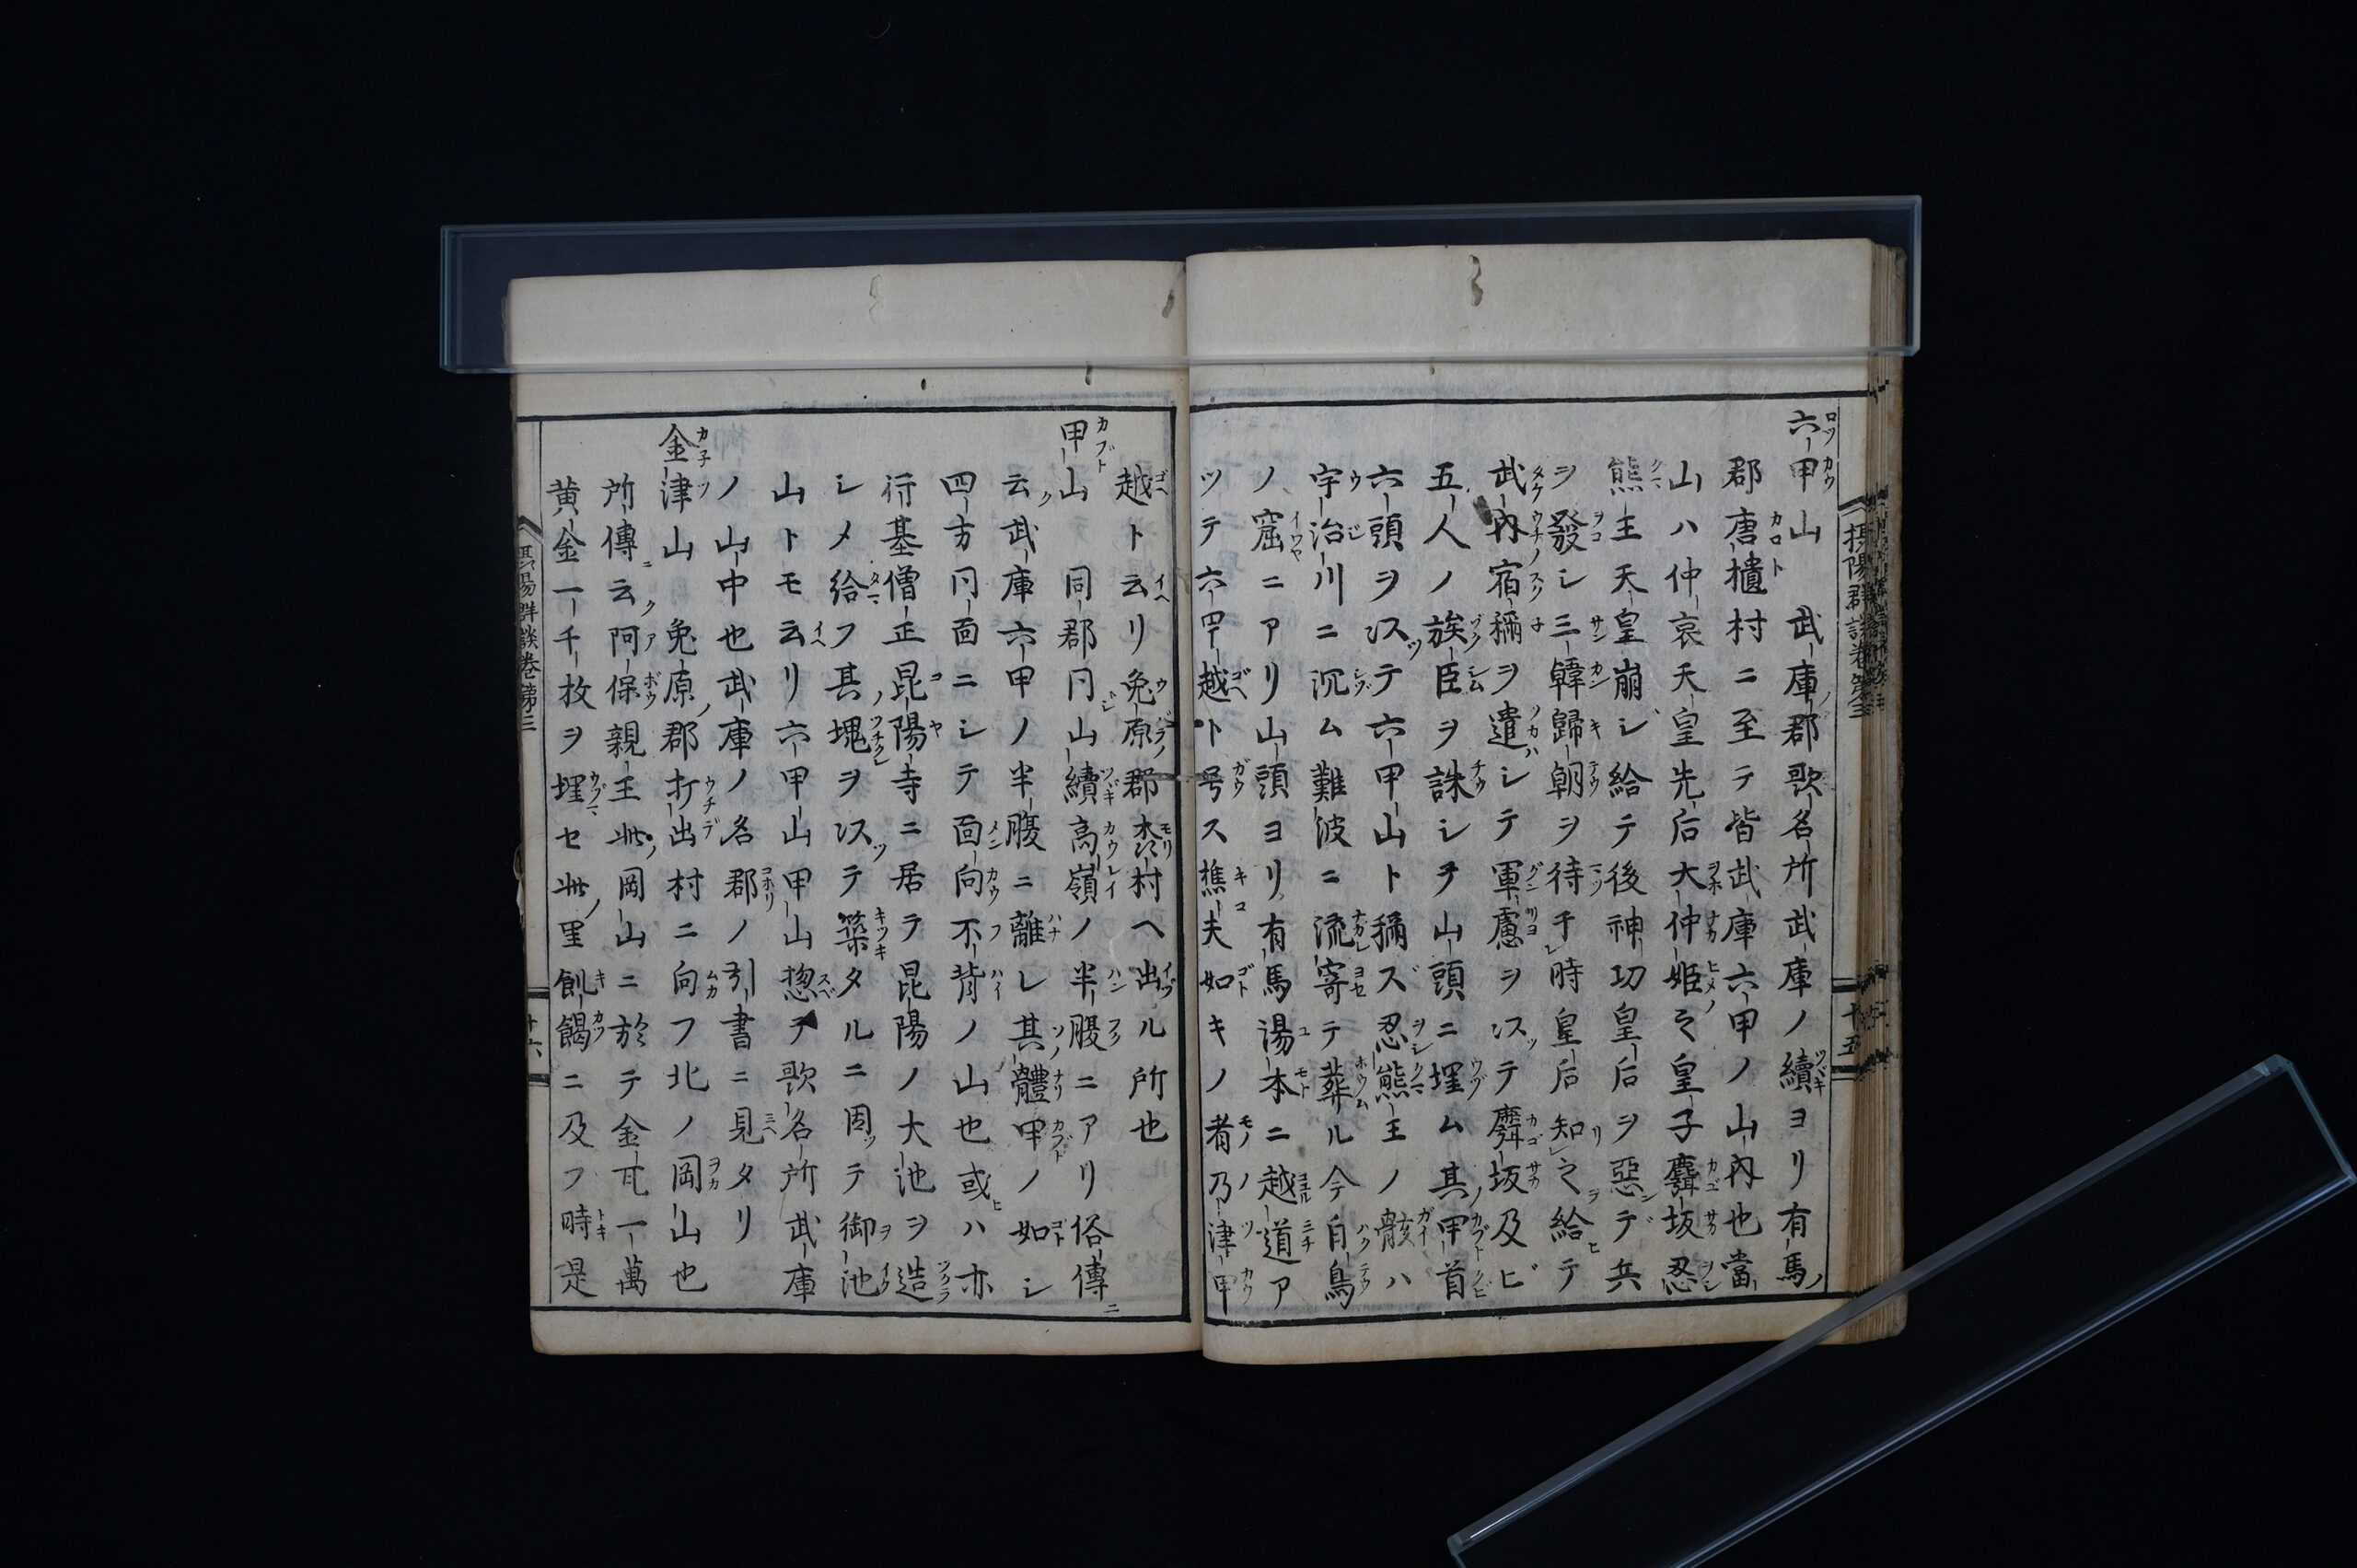 六甲山 武庫郡歌名所武庫ノ續ヨリ有馬
郡唐櫃村ニ至テ皆武庫六甲ノ山内也當
山ハ仲哀天皇先后大仲姫之皇子麛坂忍
熊王天皇崩ジ給テ後神功皇后ヲ惡デ兵
ヲ發シ三韓歸朝ヲ待千時皇后知之給テ
武内宿禰ヲ遣シテ軍慮ヲ以テ麛坂及ビ
五人ノ族臣ヲ誅シヲ山頭ニ埋ム其甲首
六頭ヲ以テ六甲山ト稱ズ忍熊王ノ骸ハ
宇治川ニ沉ム難波ニ流寄テ葬ル今白鳥
ノ窟ニアリ山頭ヨリ有馬湯本ニ越道ア
ツテ六甲越ト号ス樵夫如キノ者乃津甲
越ト云リ兔原郡森村ヘ出ル所也
甲山 同郡円山續高嶺ノ半腹ニアリ俗傳
云武庫六甲ノ半腹ニ離レ其體甲ノ如シ
四方円面ニシテ面向不背ノ山也或ハ亦
行基僧正昆陽寺ニ居テ昆陽ノ大池ヲ造
シメ給フ其塊ヲ以テ築タルニ因テ御池
山トモ云リ六甲山甲山惣テ歌名所武庫
ノ山中也武庫ノ名郡ノ引書ニ見タリ
金津山 兔原郡打出村ニ向フ北ノ岡山也
所傳云阿保親王此岡山ニ於テ金瓦一萬
黄金一千枚ヲ埋セ此里飢饉ニ及フ時是
摂陽群談巻第三
十五
十六